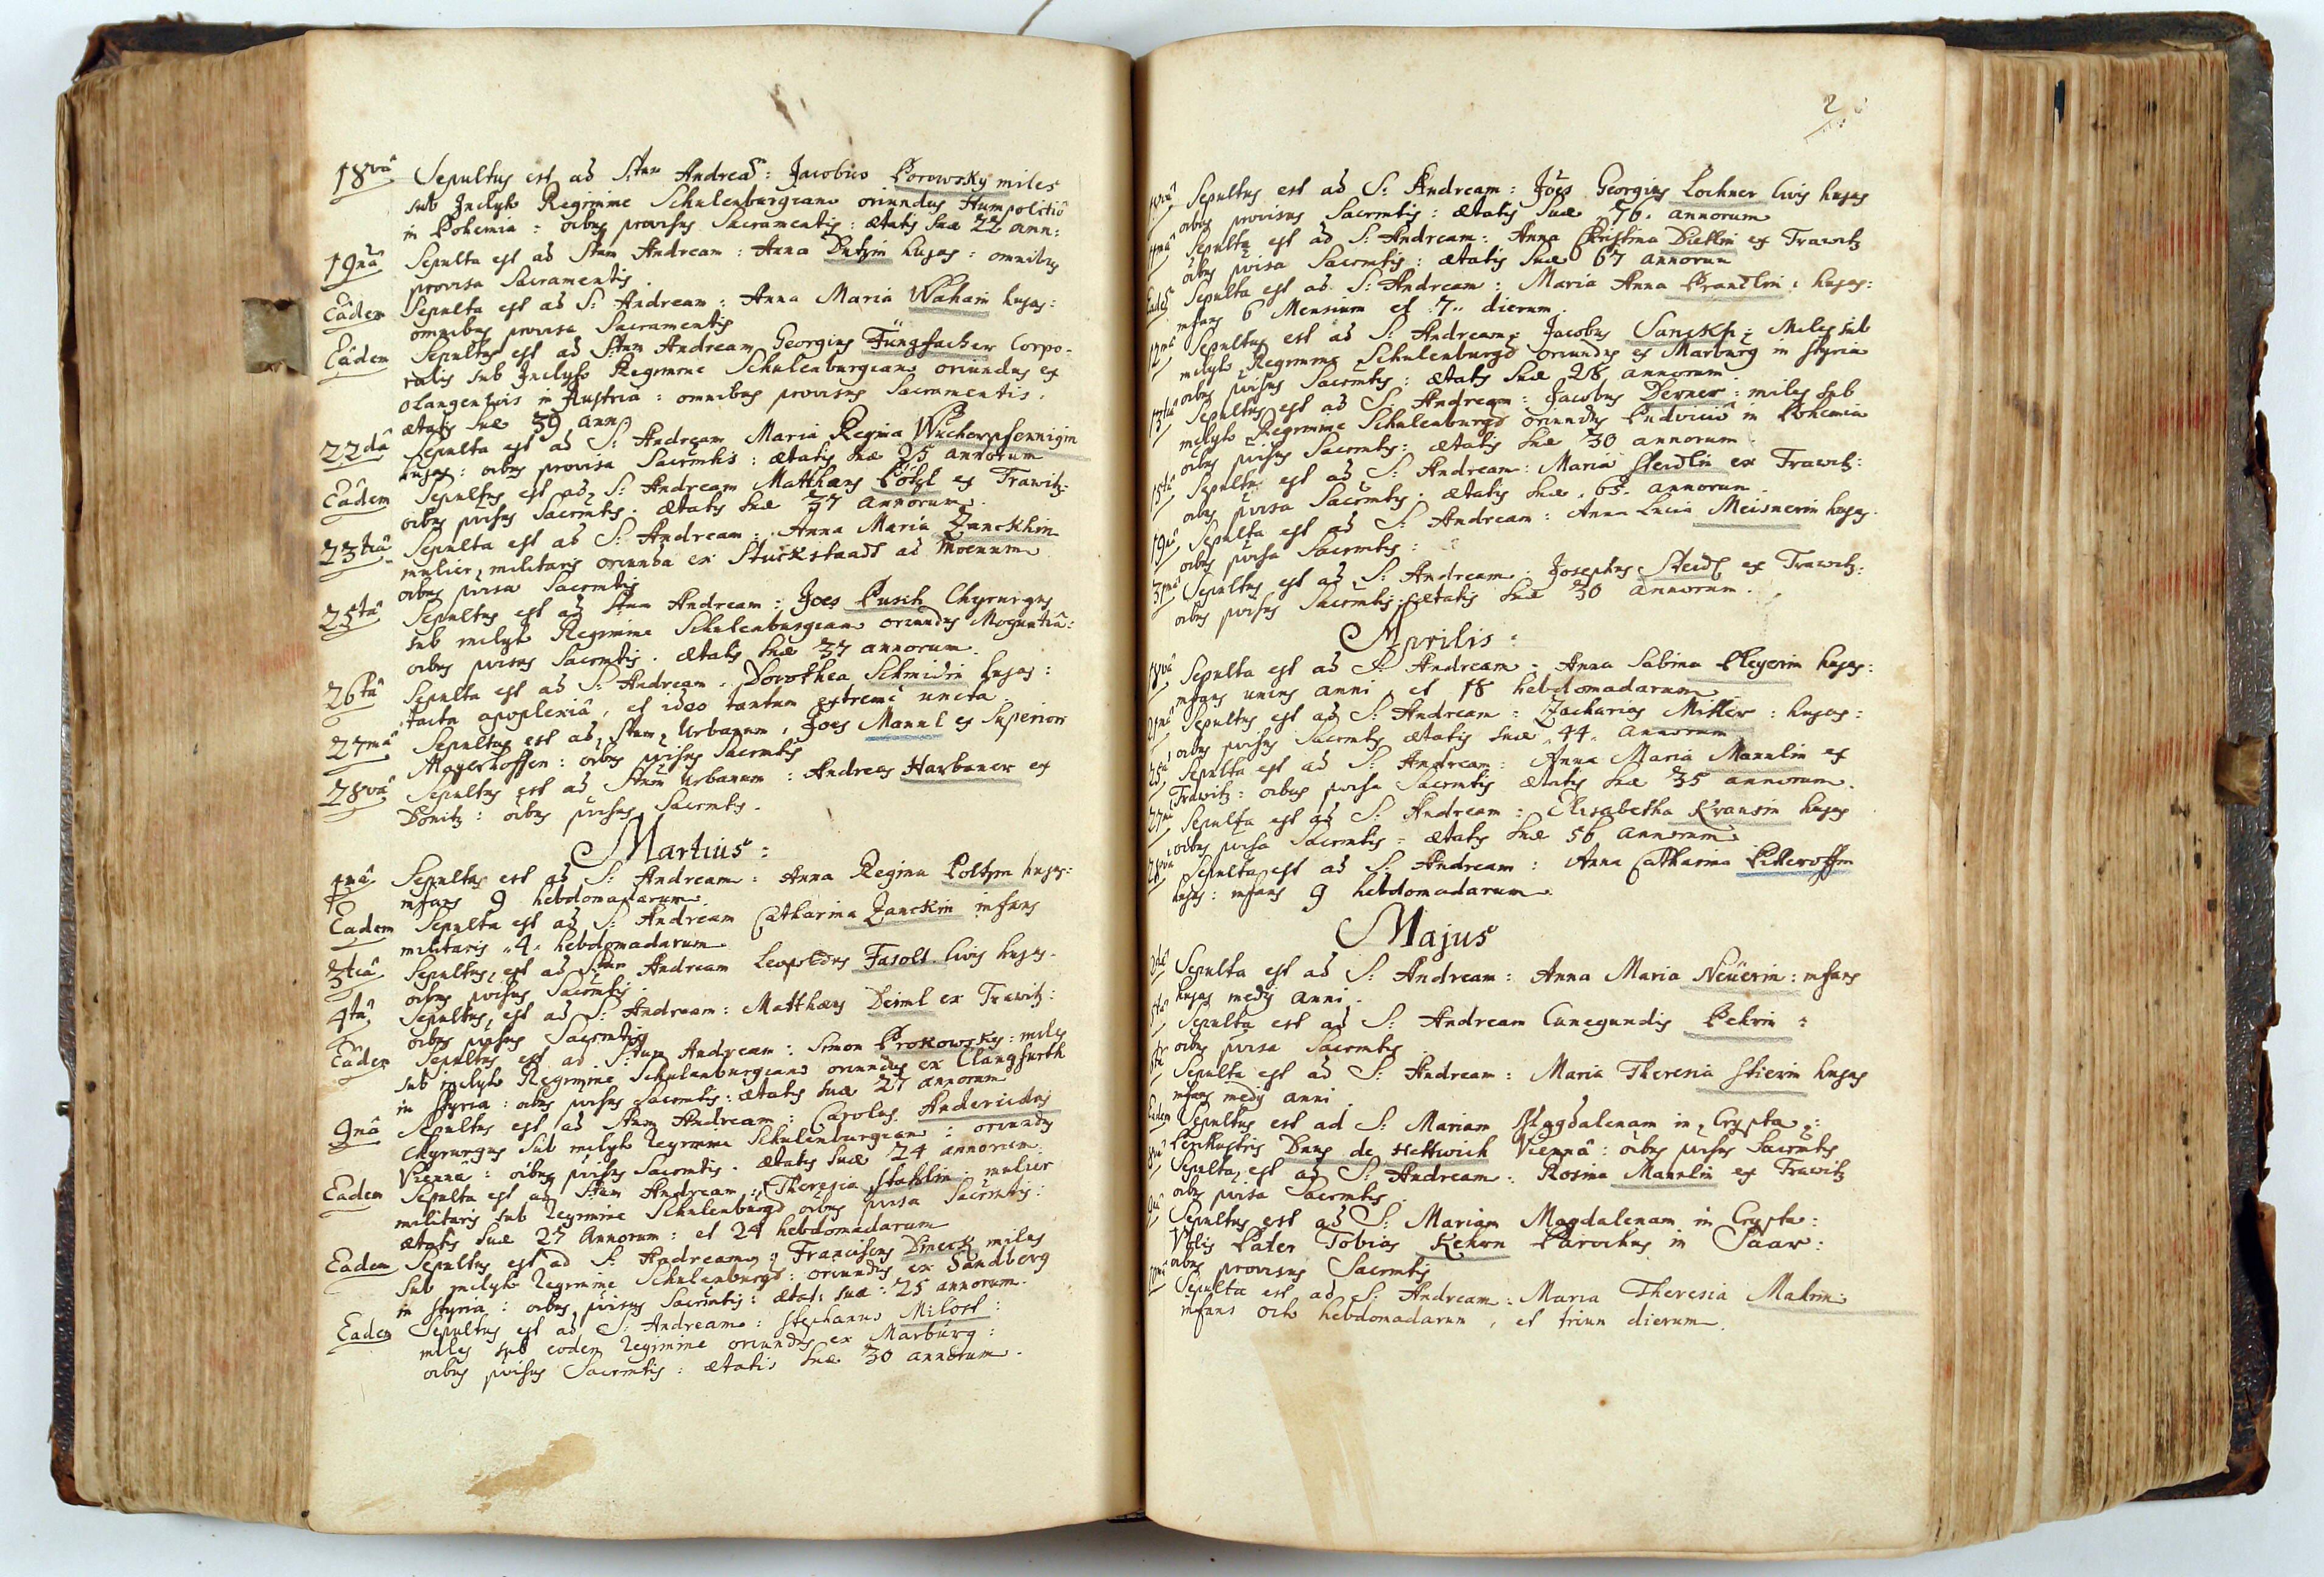 18va Sepultus est ad S:tum Andreā: Jacobus Porowsky miles
sub Inclyto Regimine Schulenburgiano oriundus Humpolitio
in Bohemia: oībus provisus Sacramentis: ætatis suæ 22 ann:
19na Sepulta est ad Stum Andream: Anna Dutzin hujas: omnibus
provisa Sacramentis.
Eâdem Sepulta est ad S: Andream: Anna Maria Wahain hujas:
omnibus provisa Sacramentis
Eâdem Sepultus est ad Stum Andream Georgius Füngfacher Corpo-
ralis sub Inclyto Regimine Schulenburgiano oriundus ex
Langenlois in Austria: omnibus provisus Sacramentis.
ætatis suæ 39 ann:
22dâ Sepulta est ad S: Andream Maria Regina Wucherpfennigin
hujas: oībus provisa Sacrmtis: ætatis suæ 25 annorum
Eâdem Sepultus est ad S: Andream Matthæus Pötzl ex Trawitz:
oībus pvisus Sacrmtis: ætatis suæ 37 annorum.
23tiâ Sepulta est ad S: Andream: Anna Maria Zanckhin
mulier militaris oriunda ex Stuckstaadt ad Moenum
oībus pvisa Sacrmtis
25tâ Sepultus est ad Stum Andream: Joes Pusch Chyrurgus
sub inclyto Regimine Schulenburgiano oriundus Moguntiâ:
oībus pvisus Sacrmtis. ætatis suæ 37 annorum.
26tâ Sepulta est ad S: Andream. Dorothea Schmidin hujas:
tacta apoplexiâ, et ideo tantum extremè uncta.
27mâ Sepultus est ad Stum Urbanum, Joes Mannl ex Superiori
Mayerhoffen: oībus pvisus Sacrmtis
28vâ Sepultus est ad Stum Urbanum: Andreas Harbauer ex
Dönitz: oībus pvisus Sacrmtis.
Martius:
1mâ Sepultus est ad S: Andream: Anna Regina Poltzin hujas:
infans 9 hebdomadarum.
Eadem Sepulta est ad S: Andream Catharina Zanckin infans
militaris 4 hebdomadarum
3tiâ Sepultus est ad Stum Andream Leopoldus Fasolt civis hujas.
oībus pvisus Sacrmtis.
4tâ Sepultus est ad S: Andream: Matthæus Deiml ex Trawitz:
oībus pvisus Sacrmtis
Eâdem Sepultus est ad Stum Andream: Simon Prokowsky: miles
sub inclyto Regimine Schulenburgiano oriundus ex Clangfurth
in Styria: oībus pvisus Sacrmtis: ætatis suæ 27 annorum
9nâ Sepultus est ad Stum Andream: Carolus Anderiedus
Chyrurgus sub inclyto Regimine Schulenburgiano: oriundus
Vienna: oībus pvisus Sacrmtis. ætatis suæ 24 annorum.
Eadem Sepulta est ad Stum Andream: Theresia Stahlin mulier
militaris sub Regimine Schulenburgō oībus pvisa Sacrmtis:
ætatis suæ 27 Annorum: et 24 hebdomadarum
Eadem Sepultus est ad S: Andream: Franciscus Dneck miles
sub inclyto Regimine Schulenburgō: oriundus ex Sandberg
in Styria: oībus pvisus Sacrmtis: ætat: suæ: 25 annorum.
Eadem Sepultus est ad S: Andream: Stephanus Milost:
miles sub eodem Regimine oriundus ex Marburg:
oībus pvisus Sacrmtis: ætatis suæ 30 annorum.
2
Sepultus est ad S: Andream: Joēs Georgius Lochner civis hujas
oībus provisus Sacrmtis: ætatis suæ 76. annorum
Sepulta est ad S: Andream: Anna Christina Dietlin ex Trawitz
oībus pvisa Sacrmtis: ætatis suæ 67 annorum
Eadem Sepulta est ad S: Andream: Maria Anna Prandlin: hujas:
infans 6 Mensium et 7 dierum.
12mâ Sepultus est ad S: Andream: Jacobus Sanckh: Miles sub
inclyto Regimine Schulenburgō oriundus ex Marburg in Styria
oībus pvisus Sacrmtis: ætatis suæ 28 annorum
13tiâ Sepultus est ad S: Andream: Jacobus Derner: miles sub
inclyto Regimine Schulenburgō oriundus Budvicio in Bohemia
oībus pvisus Sacrmtis: ætatis suæ 30 annorum
15tâ Sepulta est ad S: Andream: Maria Steidlin ex Trawitz:
oībus pvisa Sacrmtis. ætatis suæ. 65. annorum.
19nâ Sepulta est ad S: Andream: Anna Lucia Meisnerin hujas.
oībus pvisa Sacrmtis:
31mâ Sepultus est ad S: Andream: Josephus Steidl ex Trawitz:
oībus pvisus Sacrmtis: ætatis suæ 30 annorum.
Aprilis:
18vâ Sepulta est ad S: Andream: Anna Sabina Pleyerin hujas:
infans unius anni, et 18 hebdomadarum
21mâ Sepultus est ad S: Andream: Zacharias Miller: hujas:
oībus pvisus Sacrmtis ætatis suæ 44 annorum
25tâ Sepulta est ad S: Andream: Anna Maria Mannlin ex
Trawitz: oībus pvisa Sacrmtis ætatis suæ 35 annorum.
27mâ Sepulta est ad S: Andream: Elisabetha Krausin hujas
oībus pvisa Sacrmtis: ætatis suæ 56 annorum
28vâ Sepulta est ad S: Andream: Anna Catharina Pitteroffin
hujas: infans 9 hebdomadarum.
Majus
2dâ Sepulta est ad S: Andream: Anna Maria Neüerin: infans
hujas medij anni.
Sepulta est ad S: Andream Cunegundis Pehrin:
oībus pvisa Sacrmtis
Sepulta est ad S: Andream: Maria Theresia Stierin hujas
infans medij anni.
Eadem Sepultus est ad S: Mariam Magdalenam in Crypta:
Perillustris Dnus de Hettwich Viennâ: oībus pvisus Sacrmtis
Sepulta est ad S: Andream: Rosina Mannlin ex Trawitz
oībus pvisa Sacrmtis.
9nâ Sepultus est ad S: Mariam Magdalenam in Crypta:
Pater Tobias Kehrn Parochus in Saar:
oībus provisus Sacrmtis
10mâ Sepulta est ad S: Andream: Maria Theresia Mahrin:
infans octo hebdomadarum, et trium dierum.